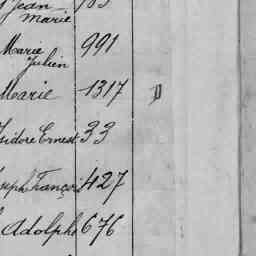 Jean
Marie
Marie 991
Julien
Marie 1317
Isidore Ernest 33
Joseph François 427
Adolphe 676